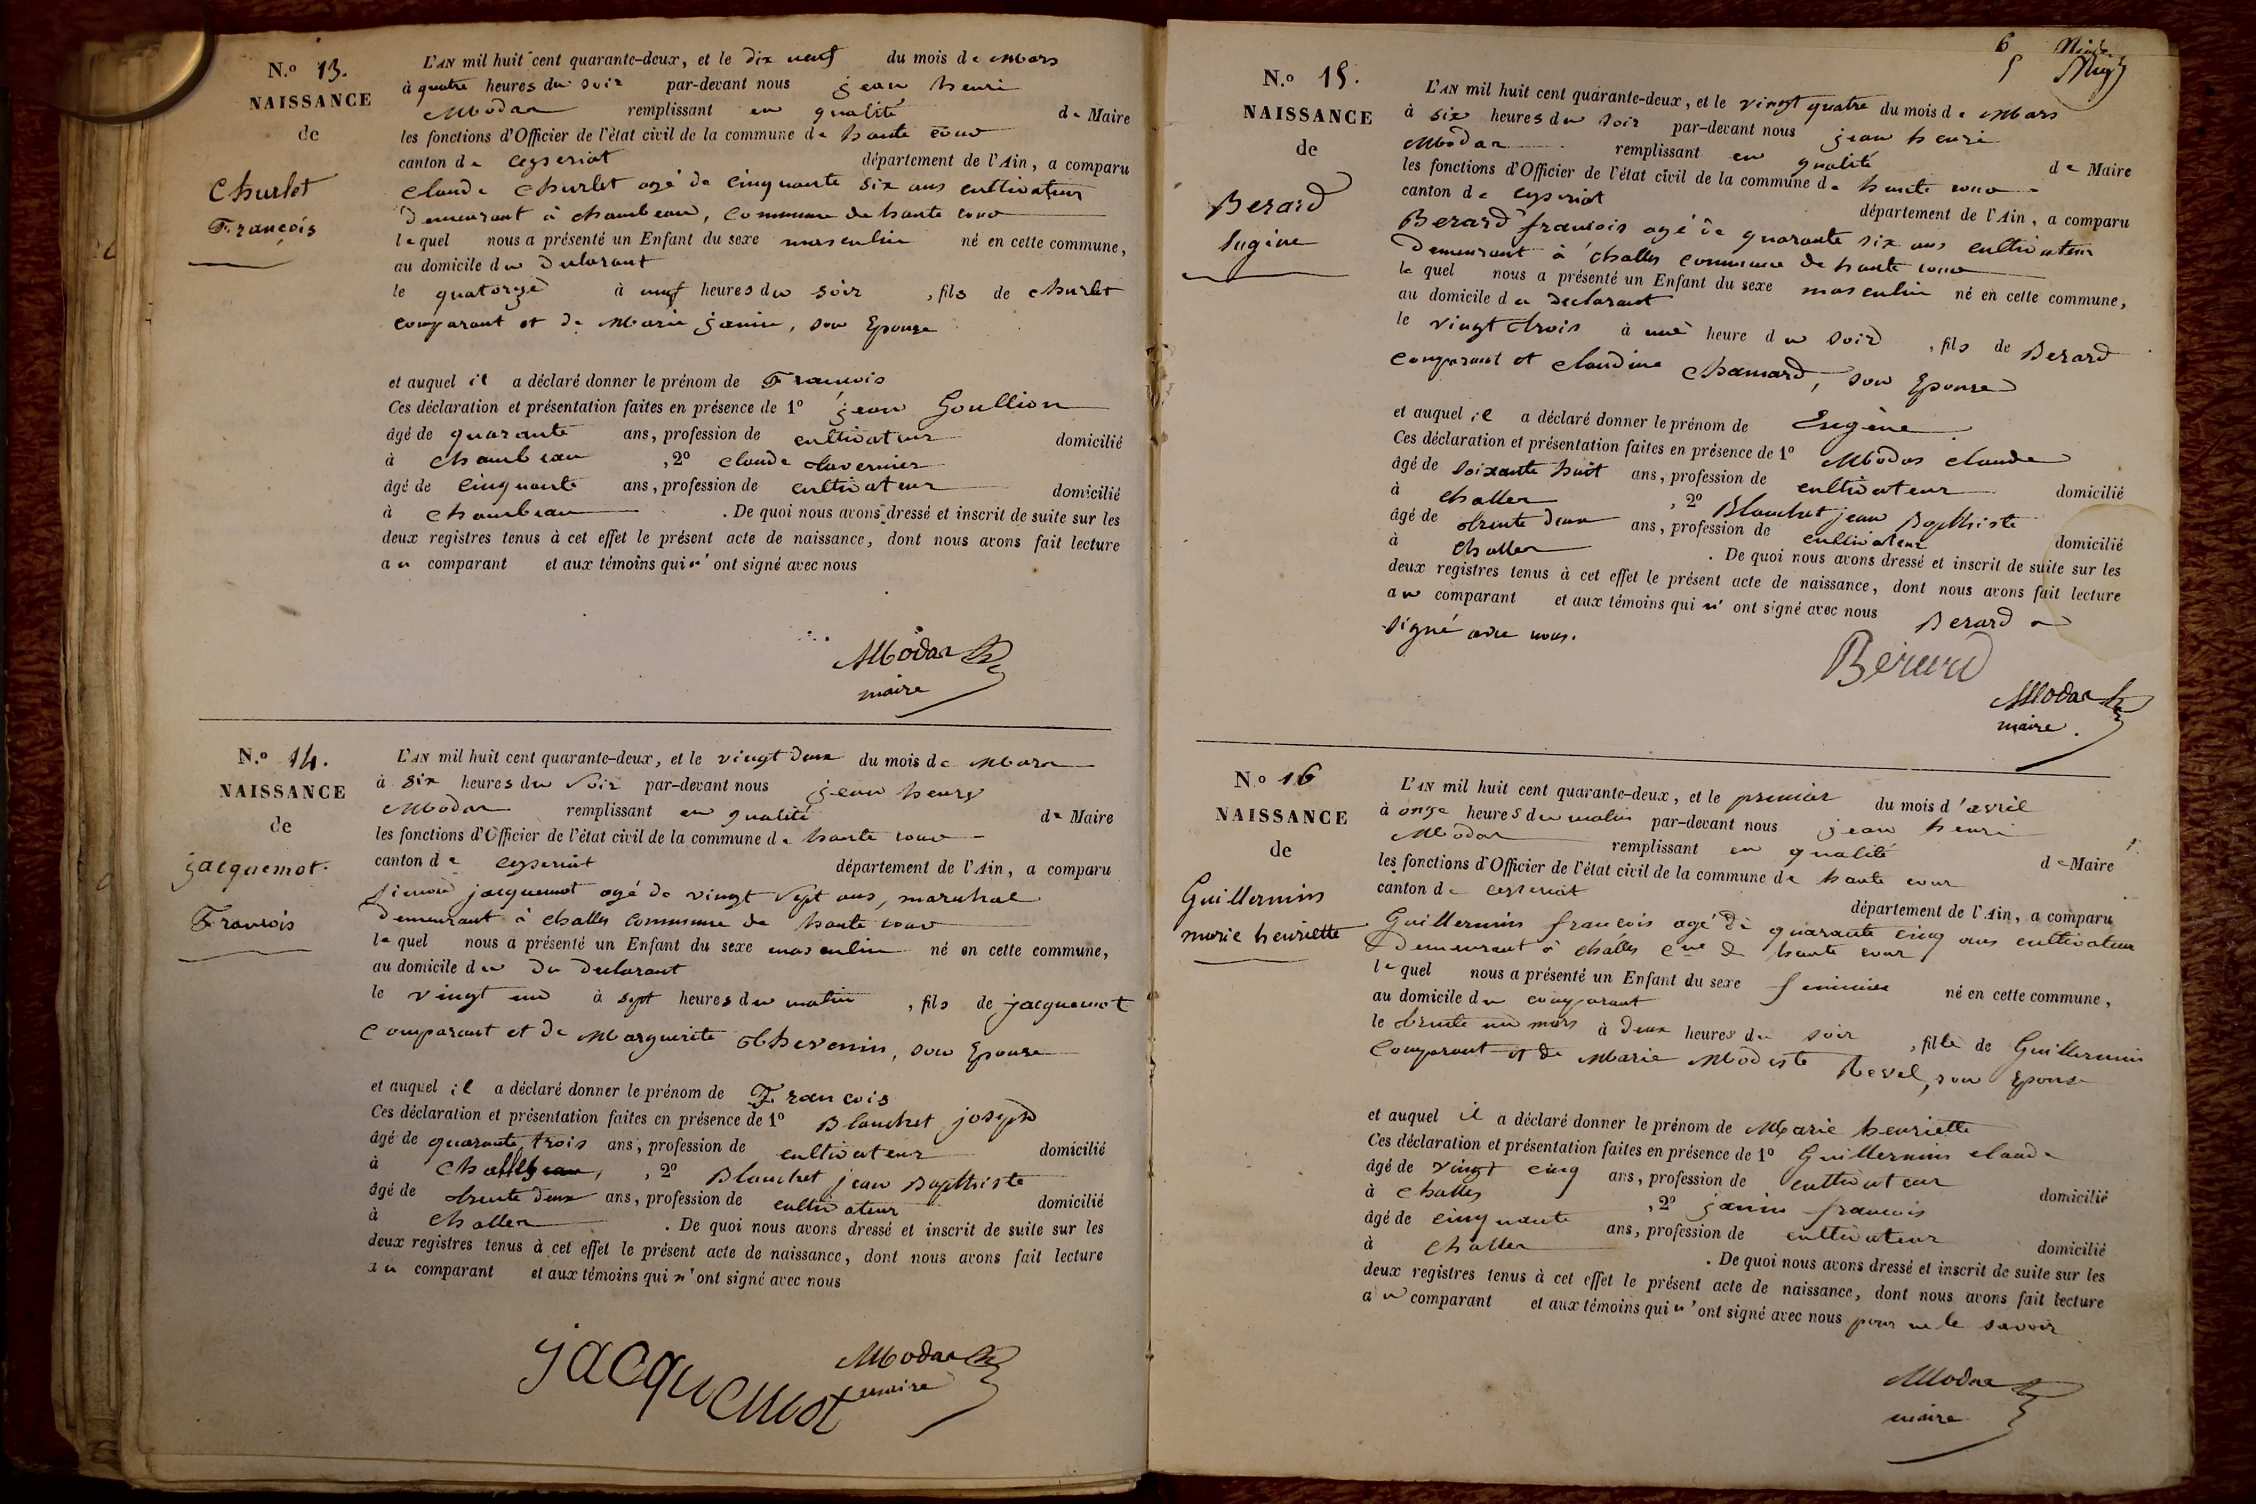 N.o 13.
NAISSANCE
de
Churlet
François
L'AN mil huit cent quarante-deux, et le dix neuf du mois de Mars
à quatre heures du soir par-devant nous jean henri
Modas remplissant en qualité de Maire
les fonctions d'Officier de l'état civil de la commune de haute cour
canton de ceyseriat département de l'Ain, a comparu
claude churlet agé de cinquante six ans cultivateur
demeurant à chambeau, commune de haute cour
lequel nous a présenté un Enfant du sexe masculin né en cette commune,
au domicile du declarant
le quatorze à neuf heures du soir, fils de churlet
comparant et de Marie janin, son Epouse
et auquel il a déclaré donner le prénom de François
Ces déclaration et présentation faites en présence de 1o jean Goullion
âgé de quarante ans, profession de cultivateur domicilié
à chambeau, 2o claude tavernier
âgé de cinquante ans, profession de cultivateur domicilié
à chambeau. De quoi nous avons dressé et inscrit de suite sur les
deux registres tenus à cet effet le présent acte de naissance, dont nous avons fait lecture
au comparant et aux témoins qui n'ont signé avec nous
Modas
maire
N.o 14.
NAISSANCE
de
jacquemot.
François
L'AN mil huit cent quarante-deux, et le vingt deux du mois de Mars
à six heures du soir par-devant nous jean henry
Modas remplissant en qualité de Maire
les fonctions d'Officier de l'état civil de la commune de haute cour
canton de ceyseriat département de l'Ain, a comparu
jacquemot agé de vingt sept ans, marechal
demeurant à challes commune de haute cour
lequel nous a présenté un Enfant du sexe masculin né en cette commune,
au domicile du du declarant
le vingt un à sept heures du matin, fils de jacquemot
comparant et de Marguerite thevenin, son Epouse
et auquel il a déclaré donner le prénom de François
Ces déclaration et présentation faites en présence de 1o Blanchet joseph
âgé de quarante trois ans, profession de cultivateur domicilié
à challes, 2o Blanchet jean Bapthiste
âgé de trente deux ans, profession de cultivateur domicilié
à challes. De quoi nous avons dressé et inscrit de suite sur les
deux registres tenus à cet effet le présent acte de naissance, dont nous avons fait lecture
au comparant et aux témoins qui n'ont signé avec nous
jacquemot
Modas
maire
6
N.o 15.
NAISSANCE
de
Berard
Eugène
L'AN mil huit cent quarante-deux, et le vingt quatre du mois de Mars
à six heures du soir par-devant nous jean henri
Modas remplissant en qualité de Maire
les fonctions d'Officier de l'état civil de la commune de haute cour
canton de ceyseriat département de l'Ain, a comparu
Berard françois agé de quarante six ans cultivateur
demeurant à challes commune de haute cour
le quel nous a présenté un Enfant du sexe masculin né en cette commune,
au domicile du declarant
le vingt trois à une heure du soir, fils de Berard
comparant et claudine chanard, son Epouse
et auquel il a déclaré donner le prénom de Eugène
Ces déclaration et présentation faites en présence de 1o Modas claude
âgé de soixante huit ans, profession de cultivateur domicilié
à challes, 2o Blanchet jean Bapthiste
âgé de trente deux ans, profession de cultivateur domicilié
à challes. De quoi nous avons dressé et inscrit de suite sur les
deux registres tenus à cet effet le présent acte de naissance, dont nous avons fait lecture
au comparant et aux témoins qui n'ont signé avec nous Berard a
signé avec nous.
Bérard
Modas
maire.
No 16
NAISSANCE
de
Guillermin
marie henriette
L'AN mil huit cent quarante-deux, et le premier du mois d'avril
à onze heures du matin par-devant nous jean henri
Modas remplissant en qualité de Maire
les fonctions d'Officier de l'état civil de la commune de haute cour
canton de ceyseriat département de l'Ain, a comparu
Guillermin françois agé de quarante cinq ans cultivateur
demeurant à challes cne de haute cour
lequel nous a présenté un Enfant du sexe feminin né en cette commune,
au domicile du comparant
le trente un mars à deux heures du soir, fille de Guillermin
comparant et de Marie Modeste Revel, son Epouse
et auquel il a déclaré donner le prénom de Marie henriette
Ces déclaration et présentation faites en présence de 1o Guillermin claude
âgé de vingt cinq ans, profession de cultivateur domicilié
à challes, 2o janin françois
âgé de cinquante ans, profession de cultivateur domicilié
à challes. De quoi nous avons dressé et inscrit de suite sur les
deux registres tenus à cet effet le présent acte de naissance, dont nous avons fait lecture
au comparant et aux témoins qui n'ont signé avec nous pour ne le savoir
Modas
maire